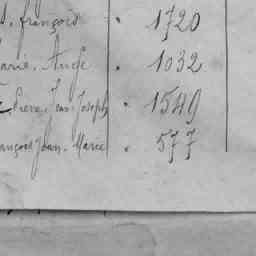 françois . 1720
Marie. Ange . 1032
Pierre. Jean. Joseph . 1549
François Jean. Marie . 577